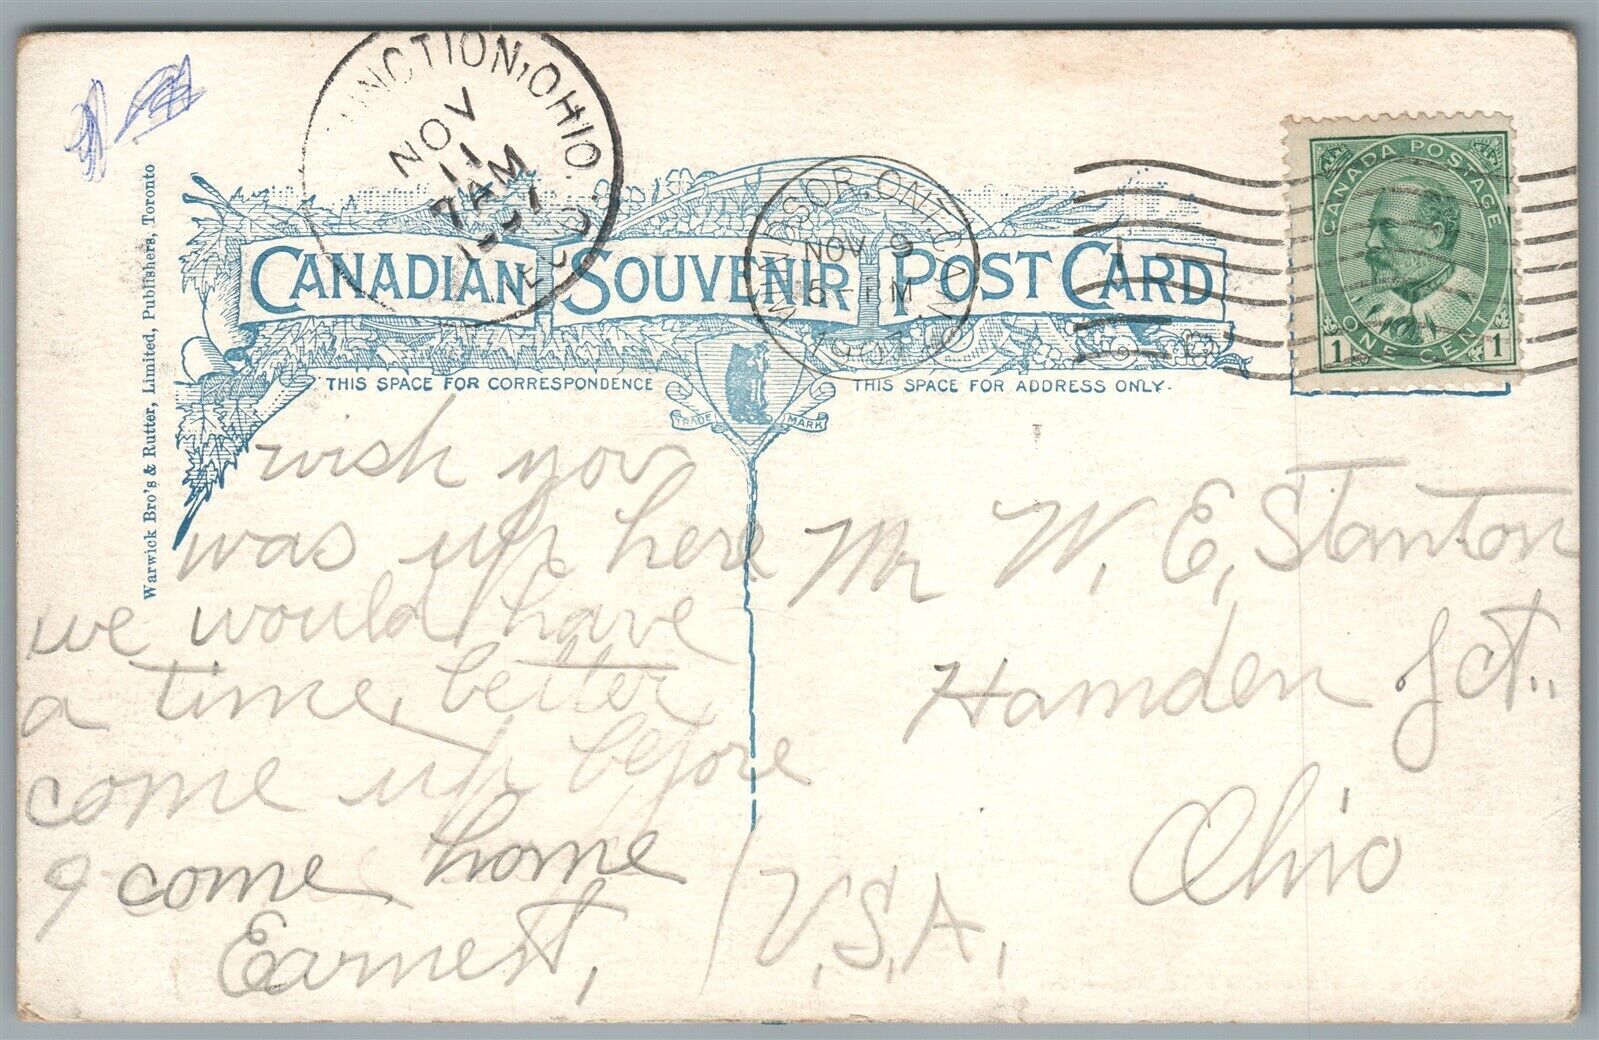 NCTION, OHIO.
NOV
11
7 AM
REC'D.
WINDSOR, ONT. CAN.
NOV 9
PM
1907
CANADA POSTAGE
1 ONE CENT 1
CANADIAN SOUVENIR POST CARD
THIS SPACE FOR CORRESPONDENCE
THIS SPACE FOR ADDRESS ONLY.
TRADE MARK
Warwick Bro's & Rutter, Limited, Publishers, Toronto
wish you
was up here
we would have
a time, better
come up before
I come home
Earnest,
Mr W. E. Stanton
Hamden Jct.,
Ohio
U.S.A.